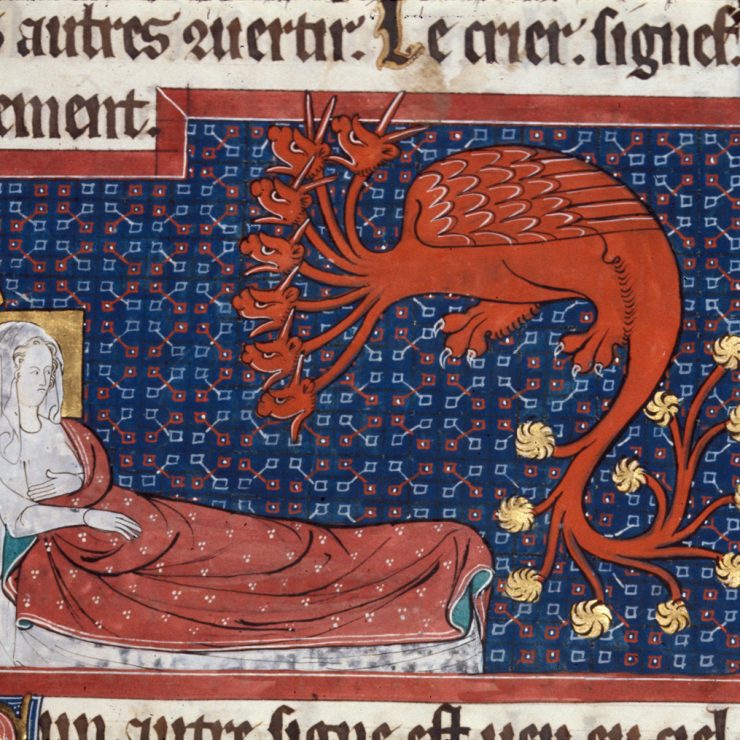 s autres avertir. Le crier. signef
ement.
Un autre signe est veu en ciel